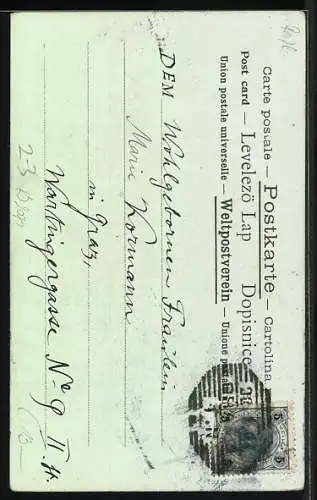 Carte postale — Postkarte — Cartolina
Post card — Levelezö Lap Dopisnice
Union postale universelle — Weltpostverein — Unione
DEM Wohlgebornen Fräulein
Marie Kormann
in Graz,
Wartingergasse No 9 II. St.
5
5